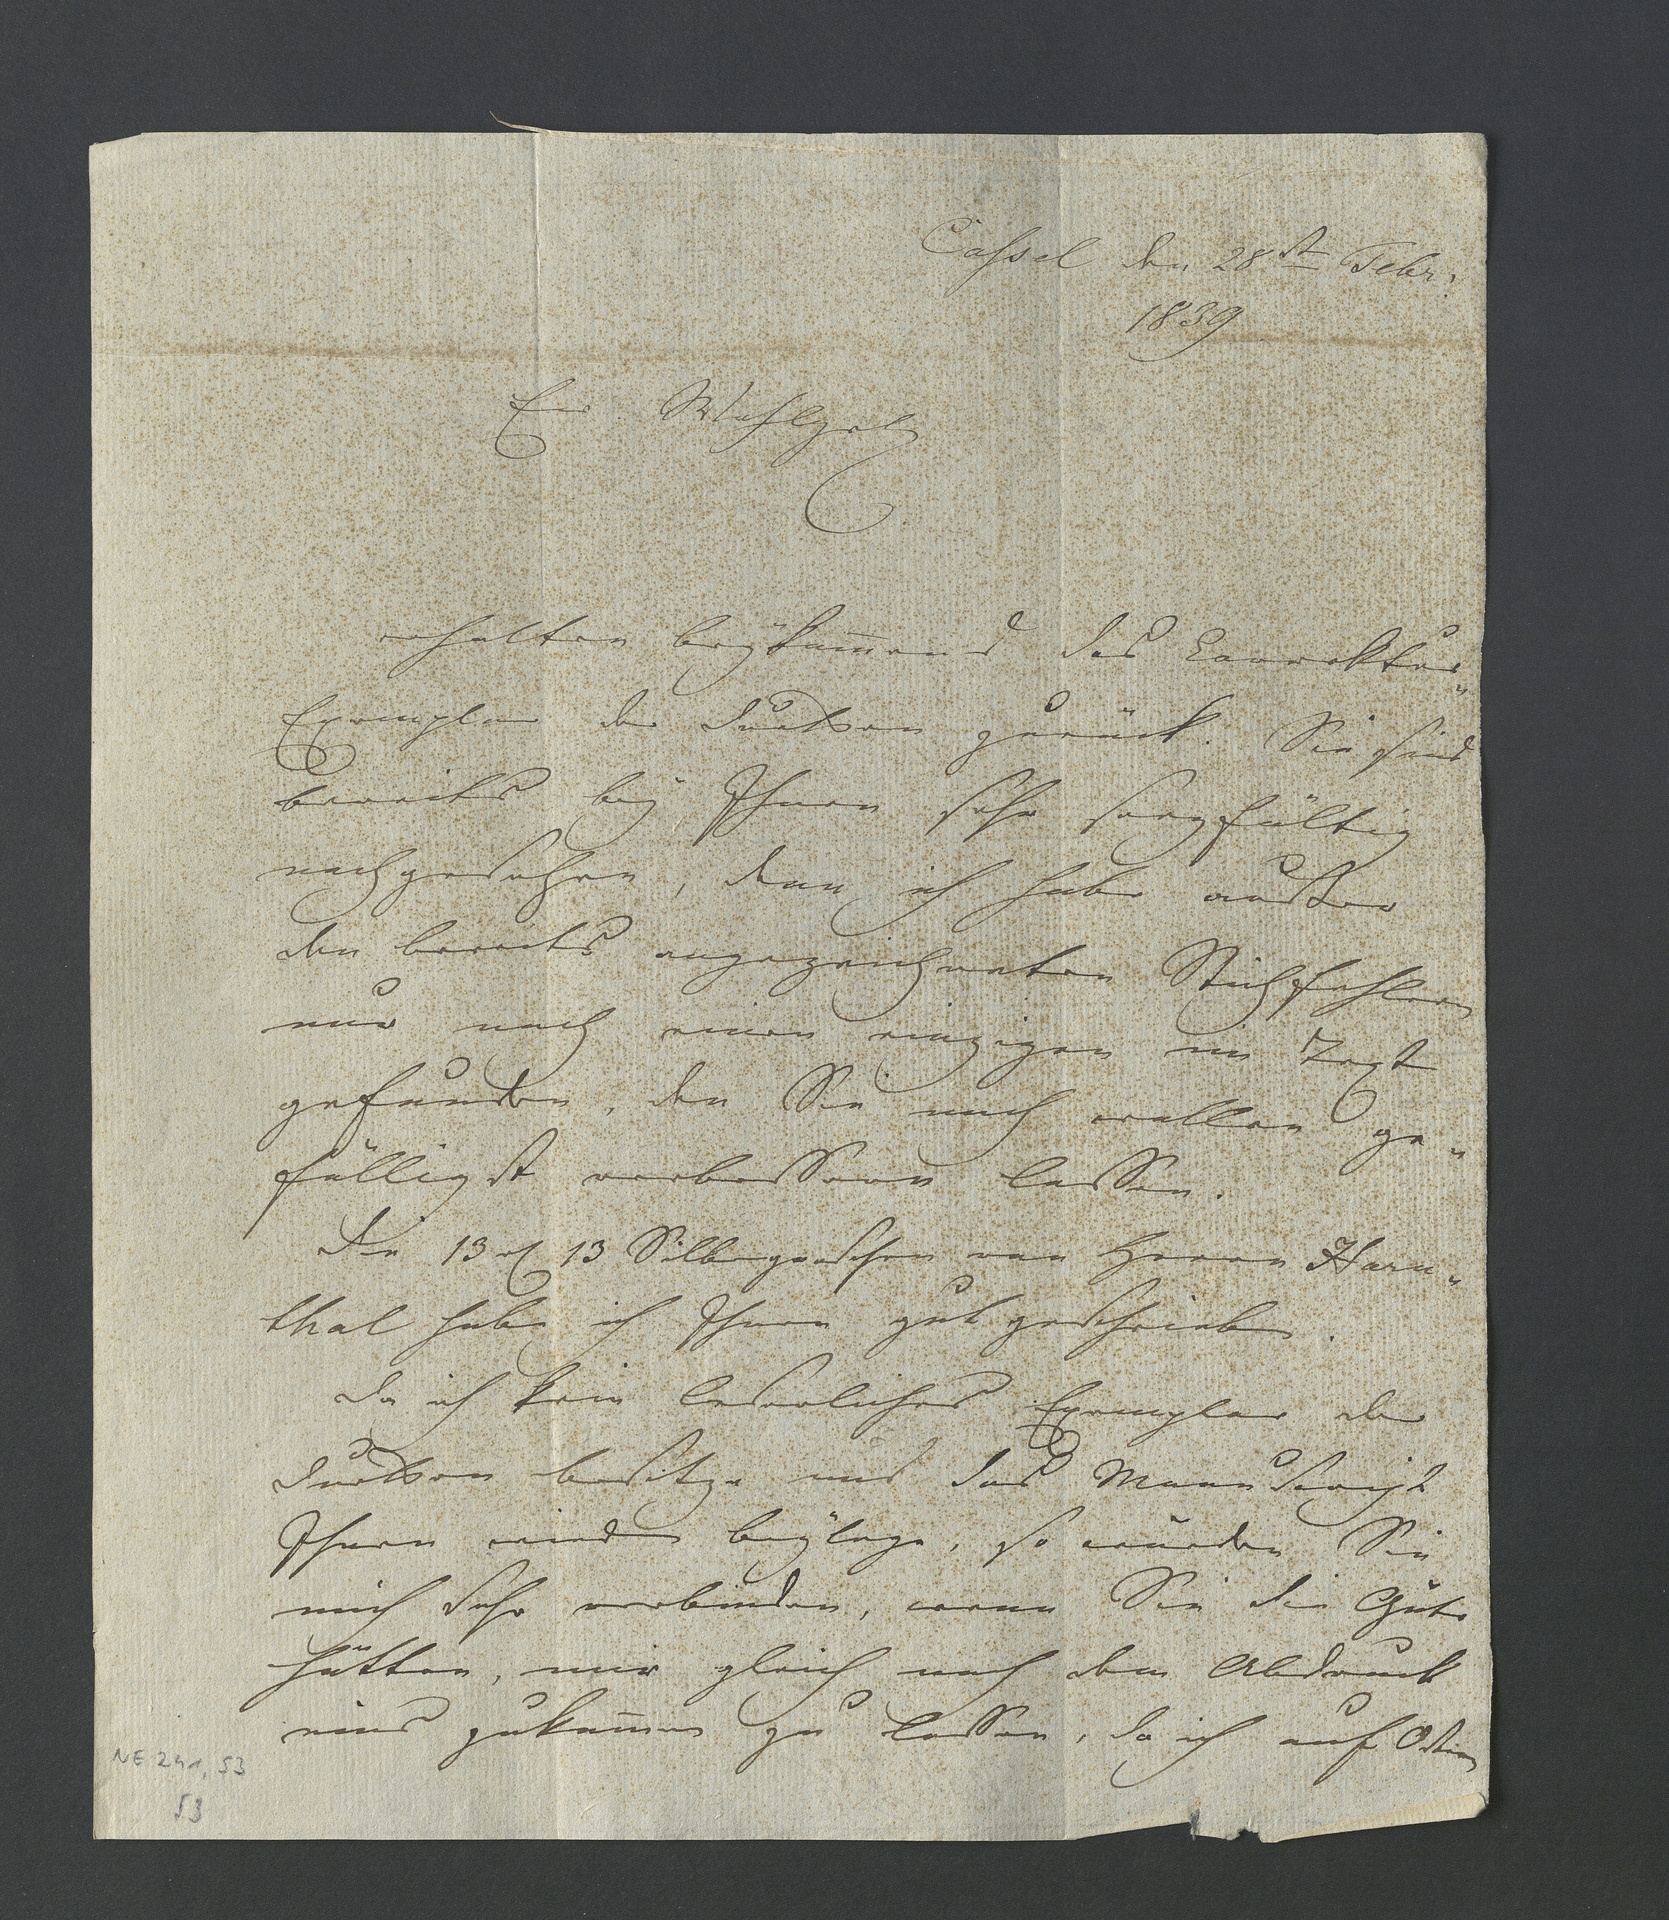 Cassel den 28st Febr.
1839
Ew. Wohlgeb
erhalten beykommend das Correktur-
Exemplar der Duetten zurück. Sie sind
bereits bey Ihnen sehr sorgfältig
nachgesehen, denn ich habe außer
den bereits angezeichneten Stichfehlern
nur noch einen einzigen im Text
gefunden, den Sie noch wollen ge-
fälligst verbessern lassen.
Die 13 rl 13 Silbergroschen von Herrn Harn-
thal habe ich Ihnen gut geschrieben.
Da ich kein leserliches Exemplar der
Duetten besitze und das Manuscript
Ihnen wieder beylege, so würden Sie
mich sehr verbinden, wenn Sie die Güte
hätten, mir gleich nach dem Abdruck
eins zukommen zu lassen, da ich auf Ostern
NE 241, 53
53